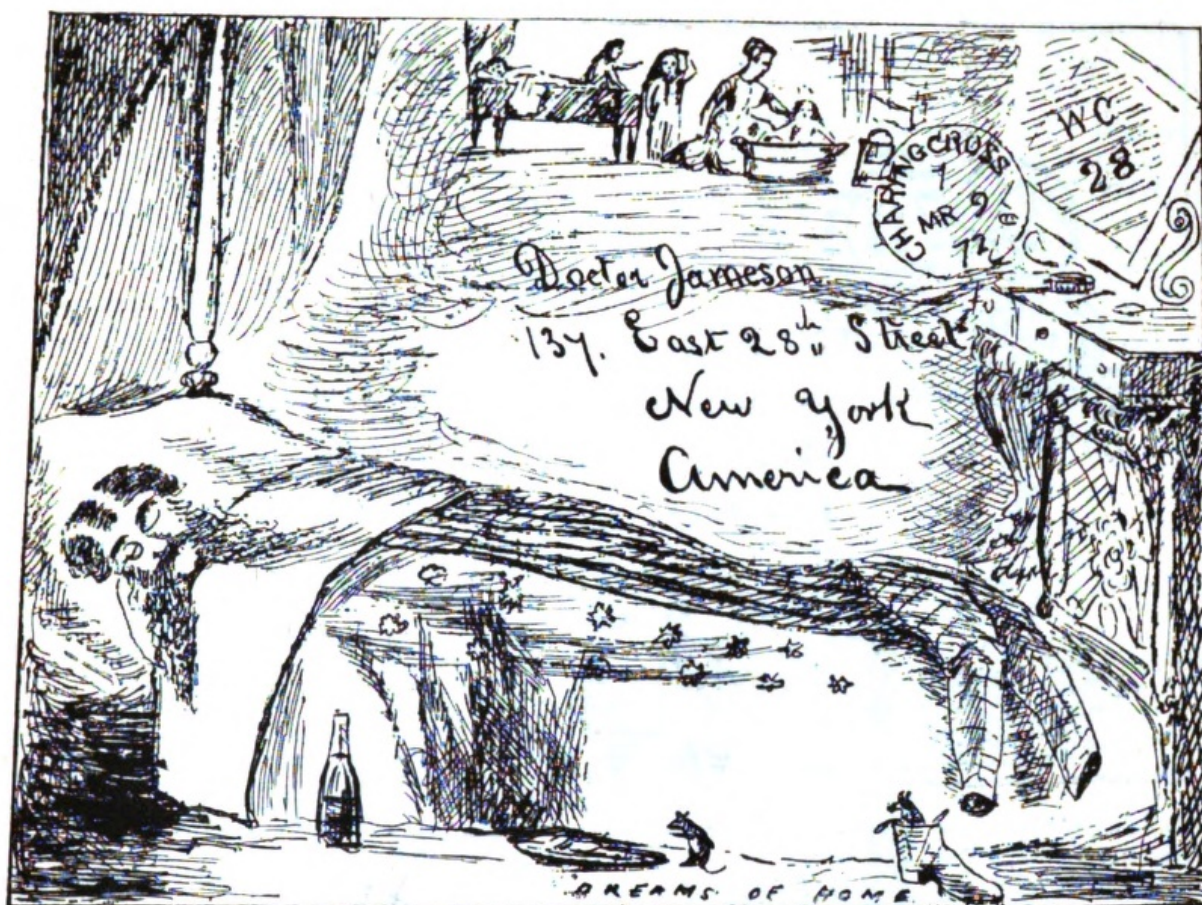 WC
28
CHARING CROSS
1
MR 9
72
Doctor Jameson
137. East 28th Street
New York
America
DREAMS OF HOME